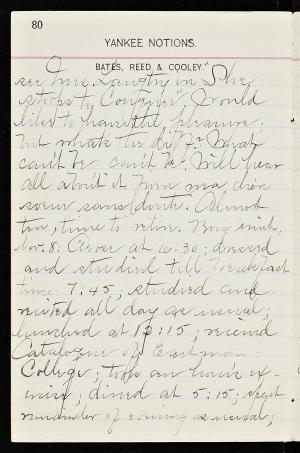 80
YANKEE NOTIONS.
BATES, REED & COOLEY."
see Mrs. Langtry in "She
stoops to Conquer", would
like to have the pleasure.
but what's to do? What
can't be can't be. Will hear
all about it from ma chère
soeur sans doute. Almost
ten, time to retire.
Nov. 8. Arose at 6:30; dressed
and studied till breakfast
time 7:45; studied and
recited all day as usual;
lunched at 12:15; received
Catalogue of Eastman
College; took an hour's ex-
ercise; dined at 5:15; spent
remainder of evening as usual;